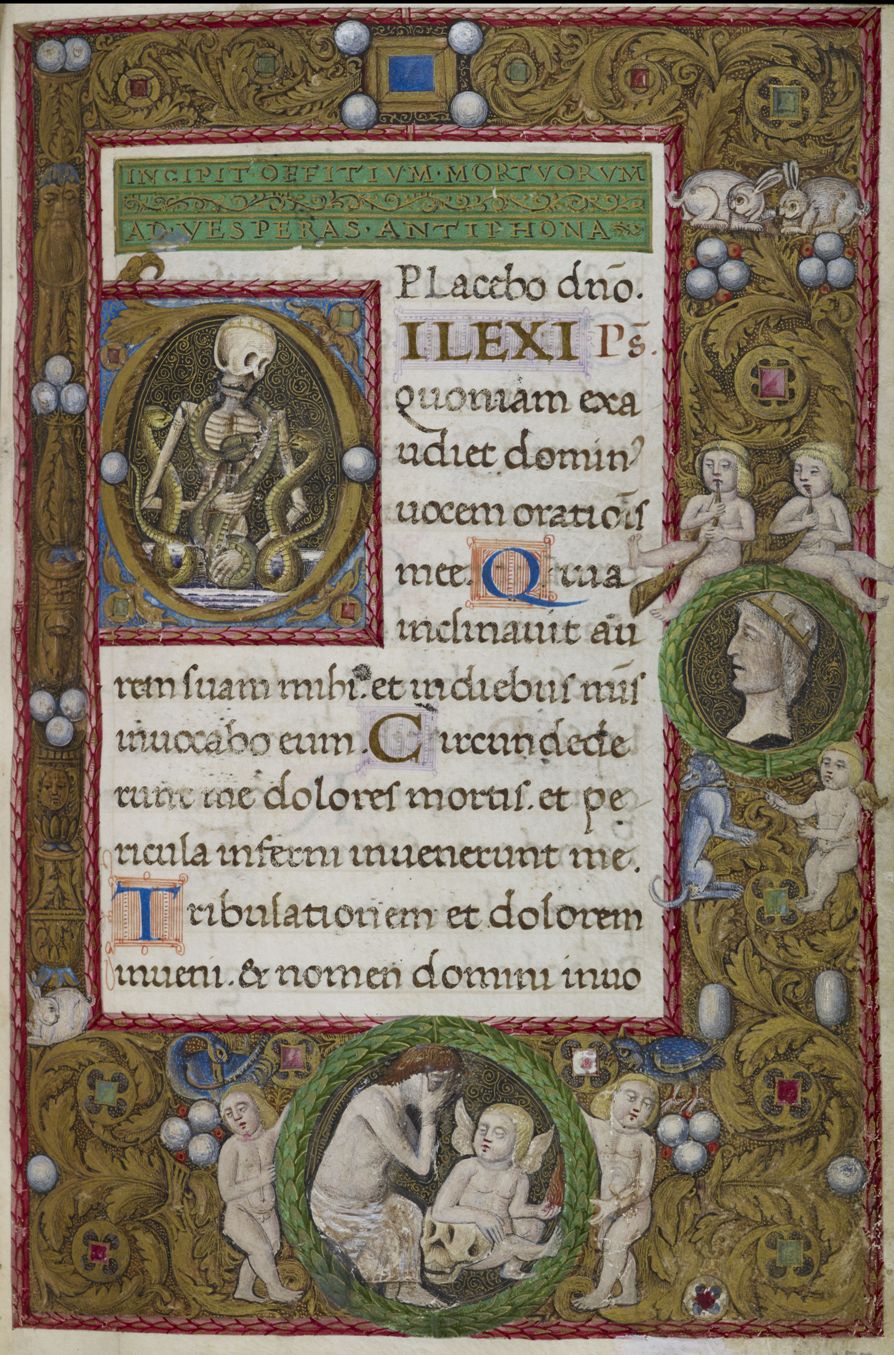 INCIPIT·OFFITIVM·MORTVORVM
AD·VESPERAS·ANTIPHONA
Placebo dn̄o.
DILEXI Ps̄.
quoniam exa
udiet dominꝰ
uocem oratiōis
mee. Quia
inclinauit au
rem suam mihi. et in diebus m̄is
inuocabo eum. Circundede
runt me dolores mortis. et pe
ricula inferni inuenerunt me.
Tribulationem et dolorem
inueni. & nomen domini inuo